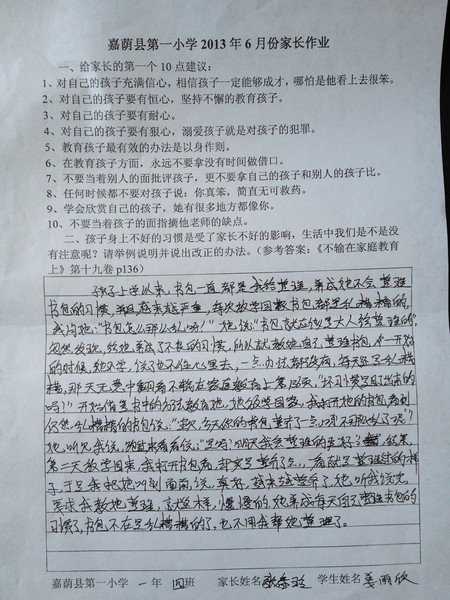 嘉荫县第一小学2013年6月份家长作业
一、给家长的第一个10点建议：
1、对自己的孩子充满信心，相信孩子一定能够成才，哪怕是他看上去很笨。
2、对自己的孩子要有恒心，坚持不懈的教育孩子。
3、对自己的孩子要有耐心。
4、对自己的孩子要有狠心，溺爱孩子就是对孩子的犯罪。
5、教育孩子最有效的办法是以身作则。
6、在教育孩子方面，永远不要拿没有时间做借口。
7、不要当着别人的面批评孩子，更不要拿自己的孩子和别人的孩子比。
8、任何时候都不要对孩子说：你真笨，简直无可救药。
9、学会欣赏自己的孩子，她有很多地方都像你。
10、不要当着孩子的面指摘他老师的缺点。
二、孩子身上不好的习惯是受了家长不好的影响，生活中我们是不是没
有注意呢？请举例说明并说出改正的办法。（参考答案：《不输在家庭教育
上》第十九卷p136）
孩子上学以来，书包一直都是我给整理，养成她不会整理
书包的习惯，而且越来越严重，每次放学回家书包都是乱糟糟的，
我问她："书包怎么那么乱呀！"她说："书包就应该是大人给整理的"
忽然发现，给她养成了不良的习惯，所以就教她自己整理书包，
的时候，她不学，说了也不往心里去，一点办法都没有，每天还是乱糟
糟，那天无意中翻看不输在家庭教育上第 "坏习惯是自己养成的
吗？"开始借鉴书中的方法教育她，她放学回家，我打开她的书包看到
仍然乱糟糟的书包说："
她听见我说，"是吗！明天我会整理的更好
第二天放学回来，我打开书包看，却实是整齐了点，看就是整理过的样
子，于是我把她叫到面前说，真好，越来越整齐了，她听我说完，
要求我教她整理，就这样，慢慢的，她养成每天自己整理书包的
习惯了，书包不在是乱糟糟的了，也不用我帮她整理了。
嘉荫县第一小学 一年 四班 家长姓名 学生姓名 姜雨欣